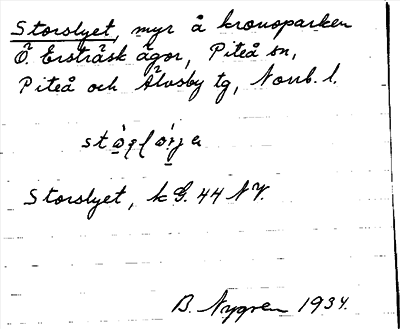 Storslyet, myr å kronoparken
Ö. Ersträsk ägor, Piteå sn,
Piteå och Älvsby tg, Norrb. l.
Storslyet, k G. 44 NV.
B. Nygren 1934.